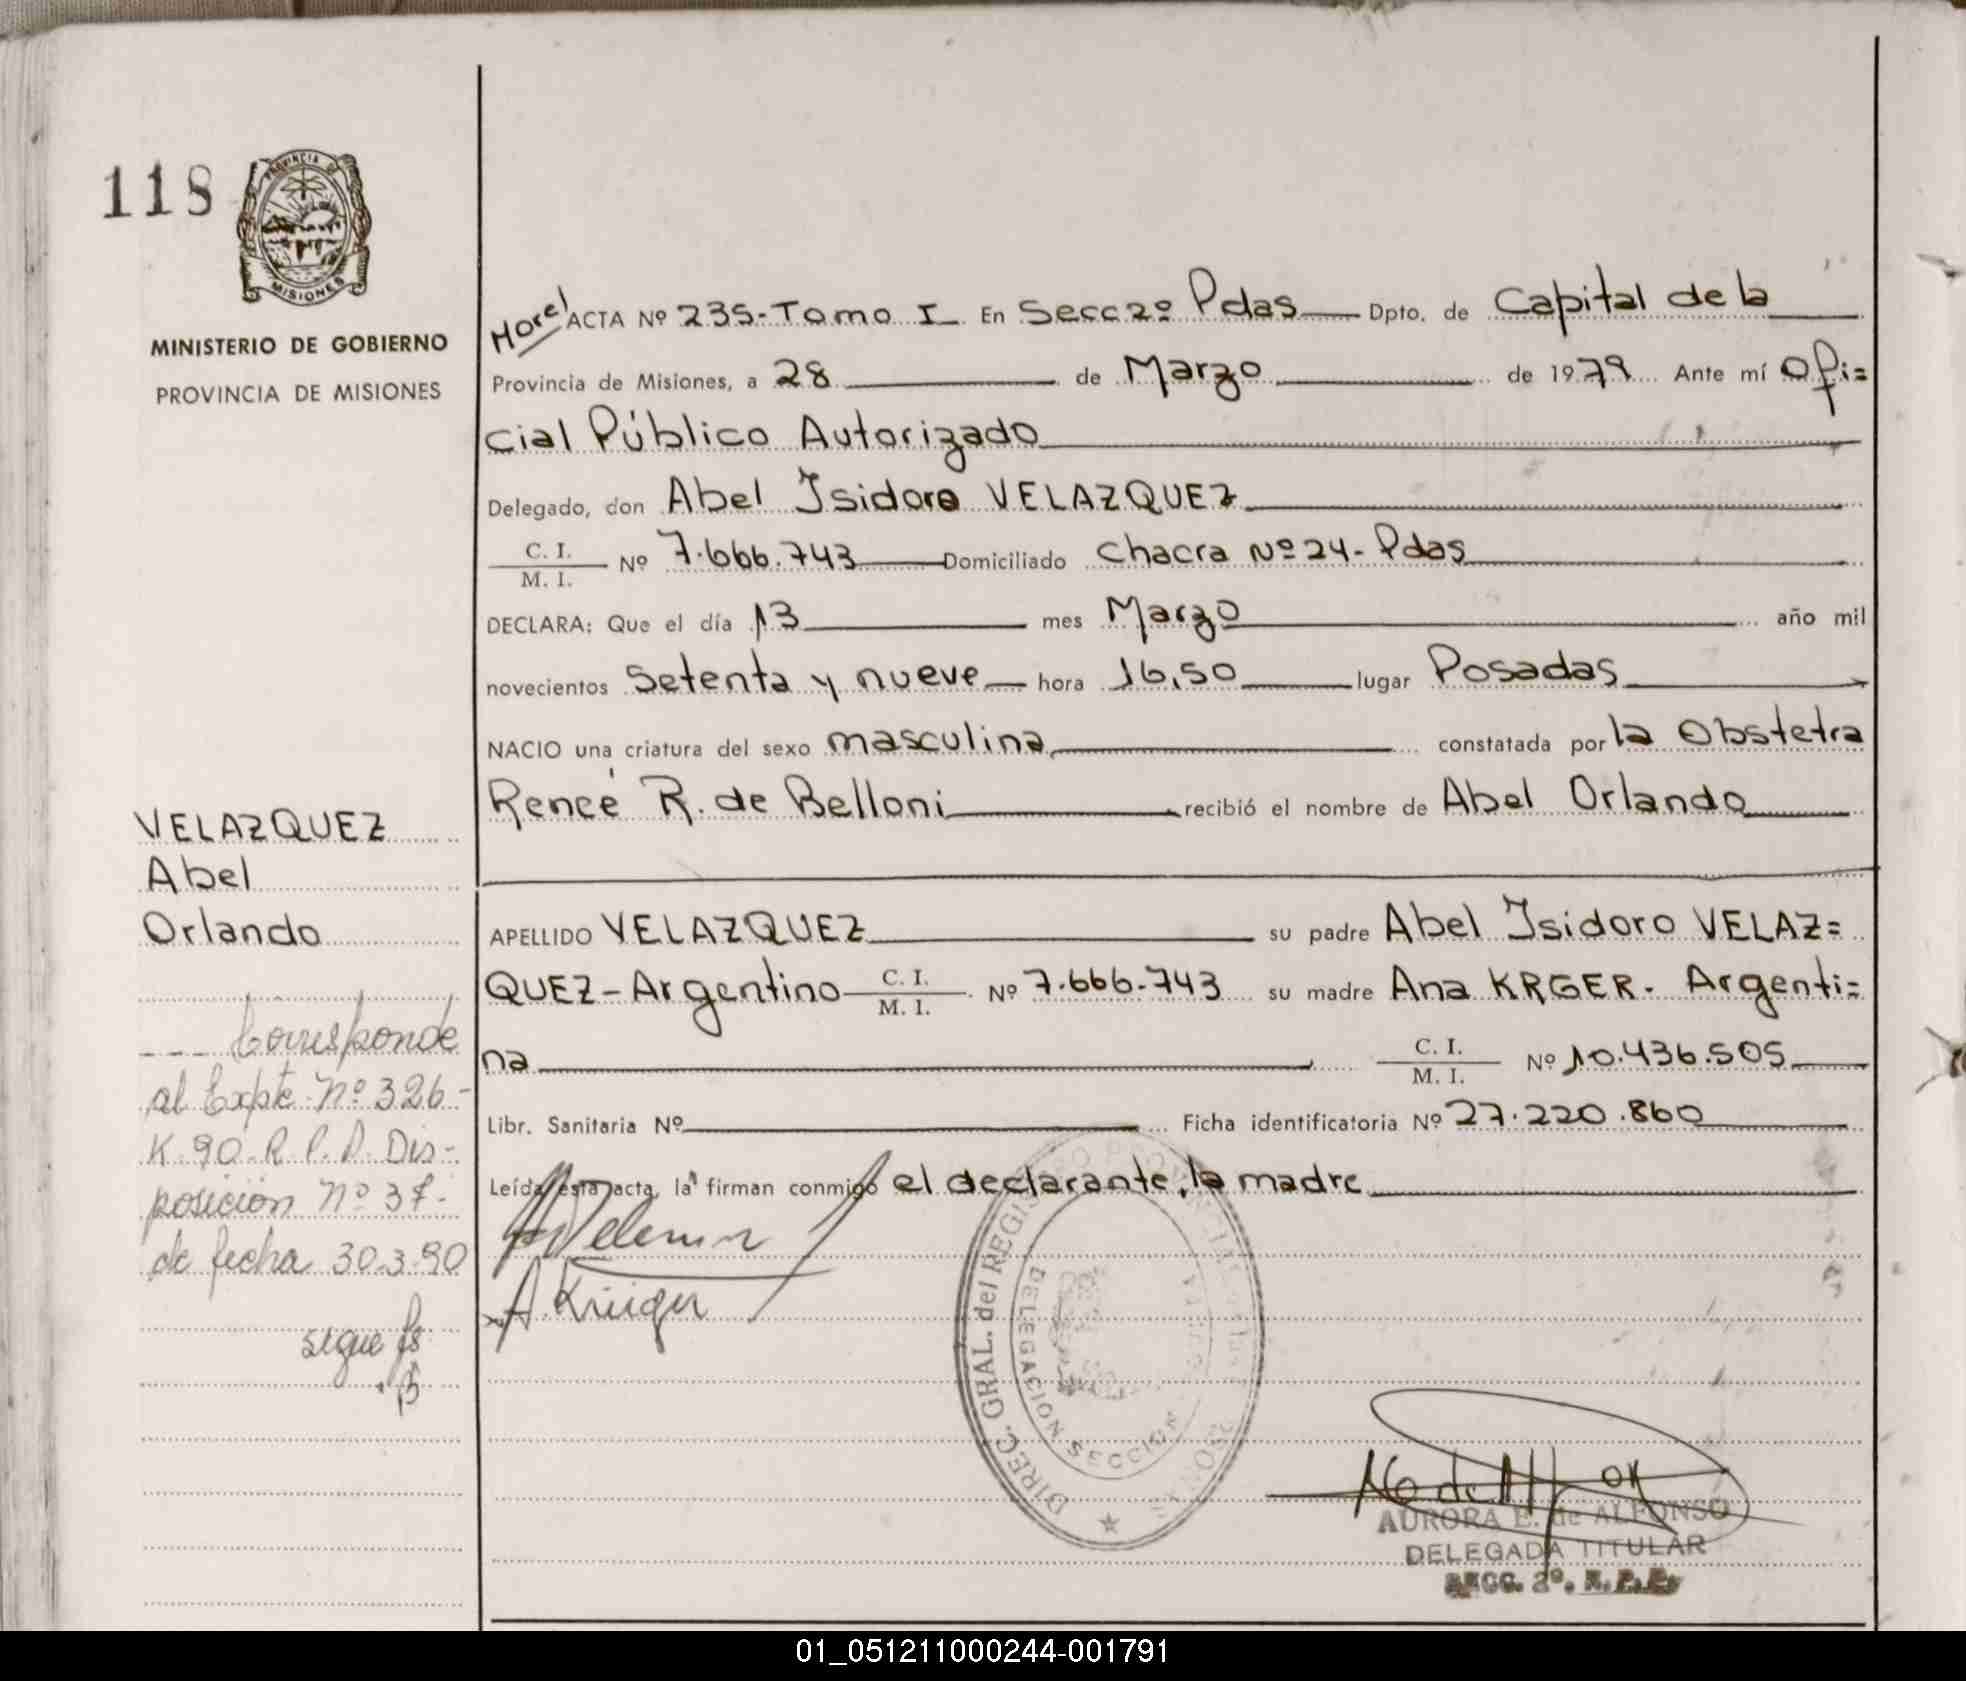 118
PROVINCIA DE
MISIONES
MINISTERIO DE GOBIERNO
PROVINCIA DE MISIONES
VELAZQUEZ
Abel
Orlando
--- Corresponde
al Expte Nº 326-
K-90-R.P.P. Dis-
posición Nº 37-
de fecha 30-3-90
sigue fs
ACTA Nº 235-Tomo I En Secc 2º Pdas Dpto. de Capital de la
Provincia de Misiones, a 28 de Marzo de 1979 Ante mí Ofi=
cial Público Autorizado
Delegado, don Abel Isidoro VELAZQUEZ
C. I.
M. I. Nº 7.666.743 Domiciliado Chacra Nº 24- Pdas
DECLARA: Que el día 13 mes Marzo año mil
novecientos Setenta y nueve hora 16,50 lugar Posadas
NACIO una criatura del sexo masculina constatada por la Obstetra
Reneé R. de Belloni recibió el nombre de Abel Orlando
APELLIDO VELAZQUEZ su padre Abel Isidoro VELAZ=
QUEZ-Argentino C. I. M. I. Nº 7.666.743 su madre Ana KRGER. Argenti=
na C. I. M. I. Nº 10.436.505
Libr. Sanitaria Nº Ficha identificatoria Nº 27.220.860
Leída esta acta, la firman conmigo el declarante, la madre
A. Krüger
DIREC. GRAL. del REGISTRO
DELEGACION SECCION
AURORA E. de ALFONSO
DELEGADA TITULAR
SECC. 2º. R. P. P.
01_051211000244-001791